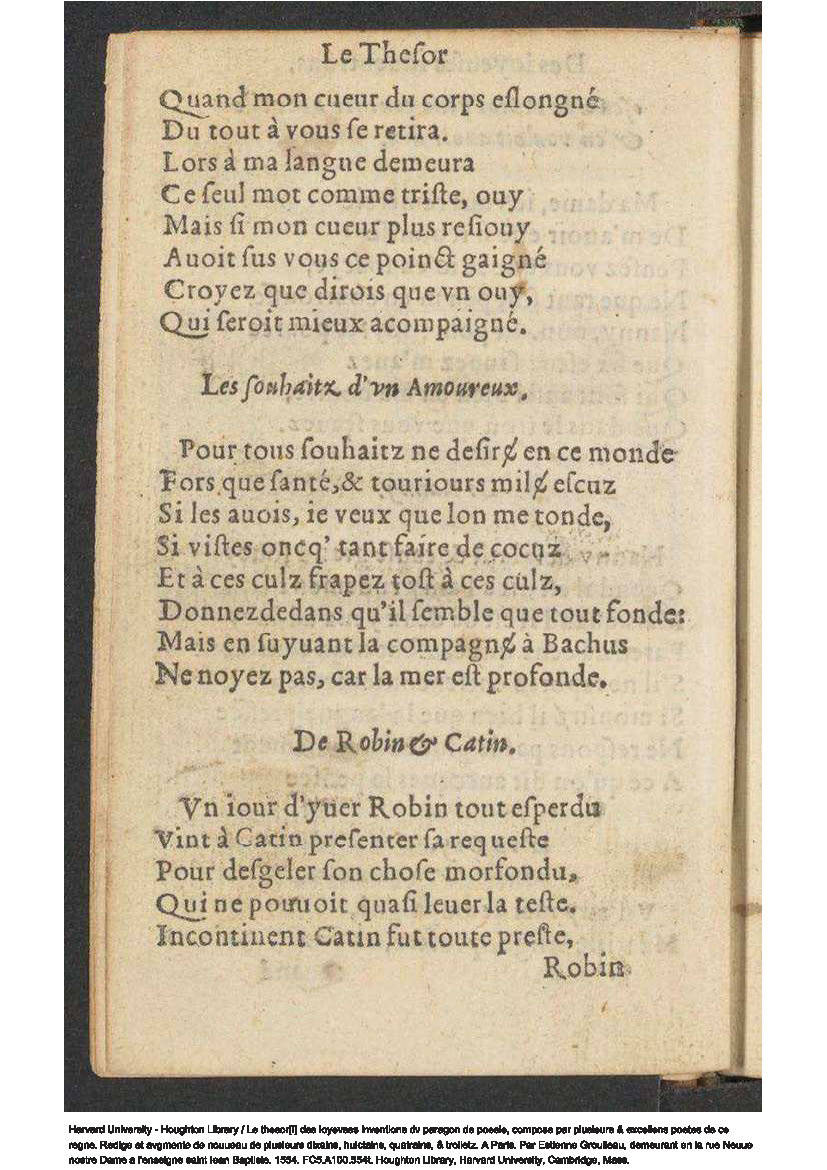 Le Theſor
Quand mon cueur du corps eſlongné
Du tout à vous ſe retira.
Lors à ma langue demeura
Ce ſeul mot comme triſte, ouy
Mais ſi mon cueur plus reſiouy
Auoit ſus vous ce poinct gaigné
Croyez que dirois que vn ouy,
Qui ſeroit mieux acompaigné.
Les ſouhaitz d'vn Amoureux.
Pour tous ſouhaitz ne deſirɇ en ce monde
Fors que ſanté, & touriours milɇ eſcuz
Si les auois, ie veux que lon me tonde,
Si viſtes oncq' tant faire de cocuz
Et à ces culz frapez toſt à ces culz,
Donnez dedans qu'il ſemble que tout fonde:
Mais en ſuyuant la compagnɇ à Bachus
Ne noyez pas, car la mer eſt profonde.
De Robin & Catin.
Vn iour d'yuer Robin tout eſperdu
Vint à Catin preſenter ſa requeſte
Pour deſgeler ſon choſe morfondu,
Qui ne pouuoit quaſi leuer la teſte.
Incontinent Catin fut toute preſte,
Robin
Harvard University - Houghton Library / Le thesor[!] des ioyevses inventions dv paragon de poesie, compose par plusieurs & excellens poetes de ce
regne. Redige et avgmente de nouueau de plusieurs dixains, huictains, quatrains, & trolletz. A Paris. Par Estienne Groulleau, demeurant en la rue Neuue
nostre Dame a l'enseigne saint Iean Baptiste. 1554. FC5.A100.554t. Houghton Library, Harvard University, Cambridge, Mass.